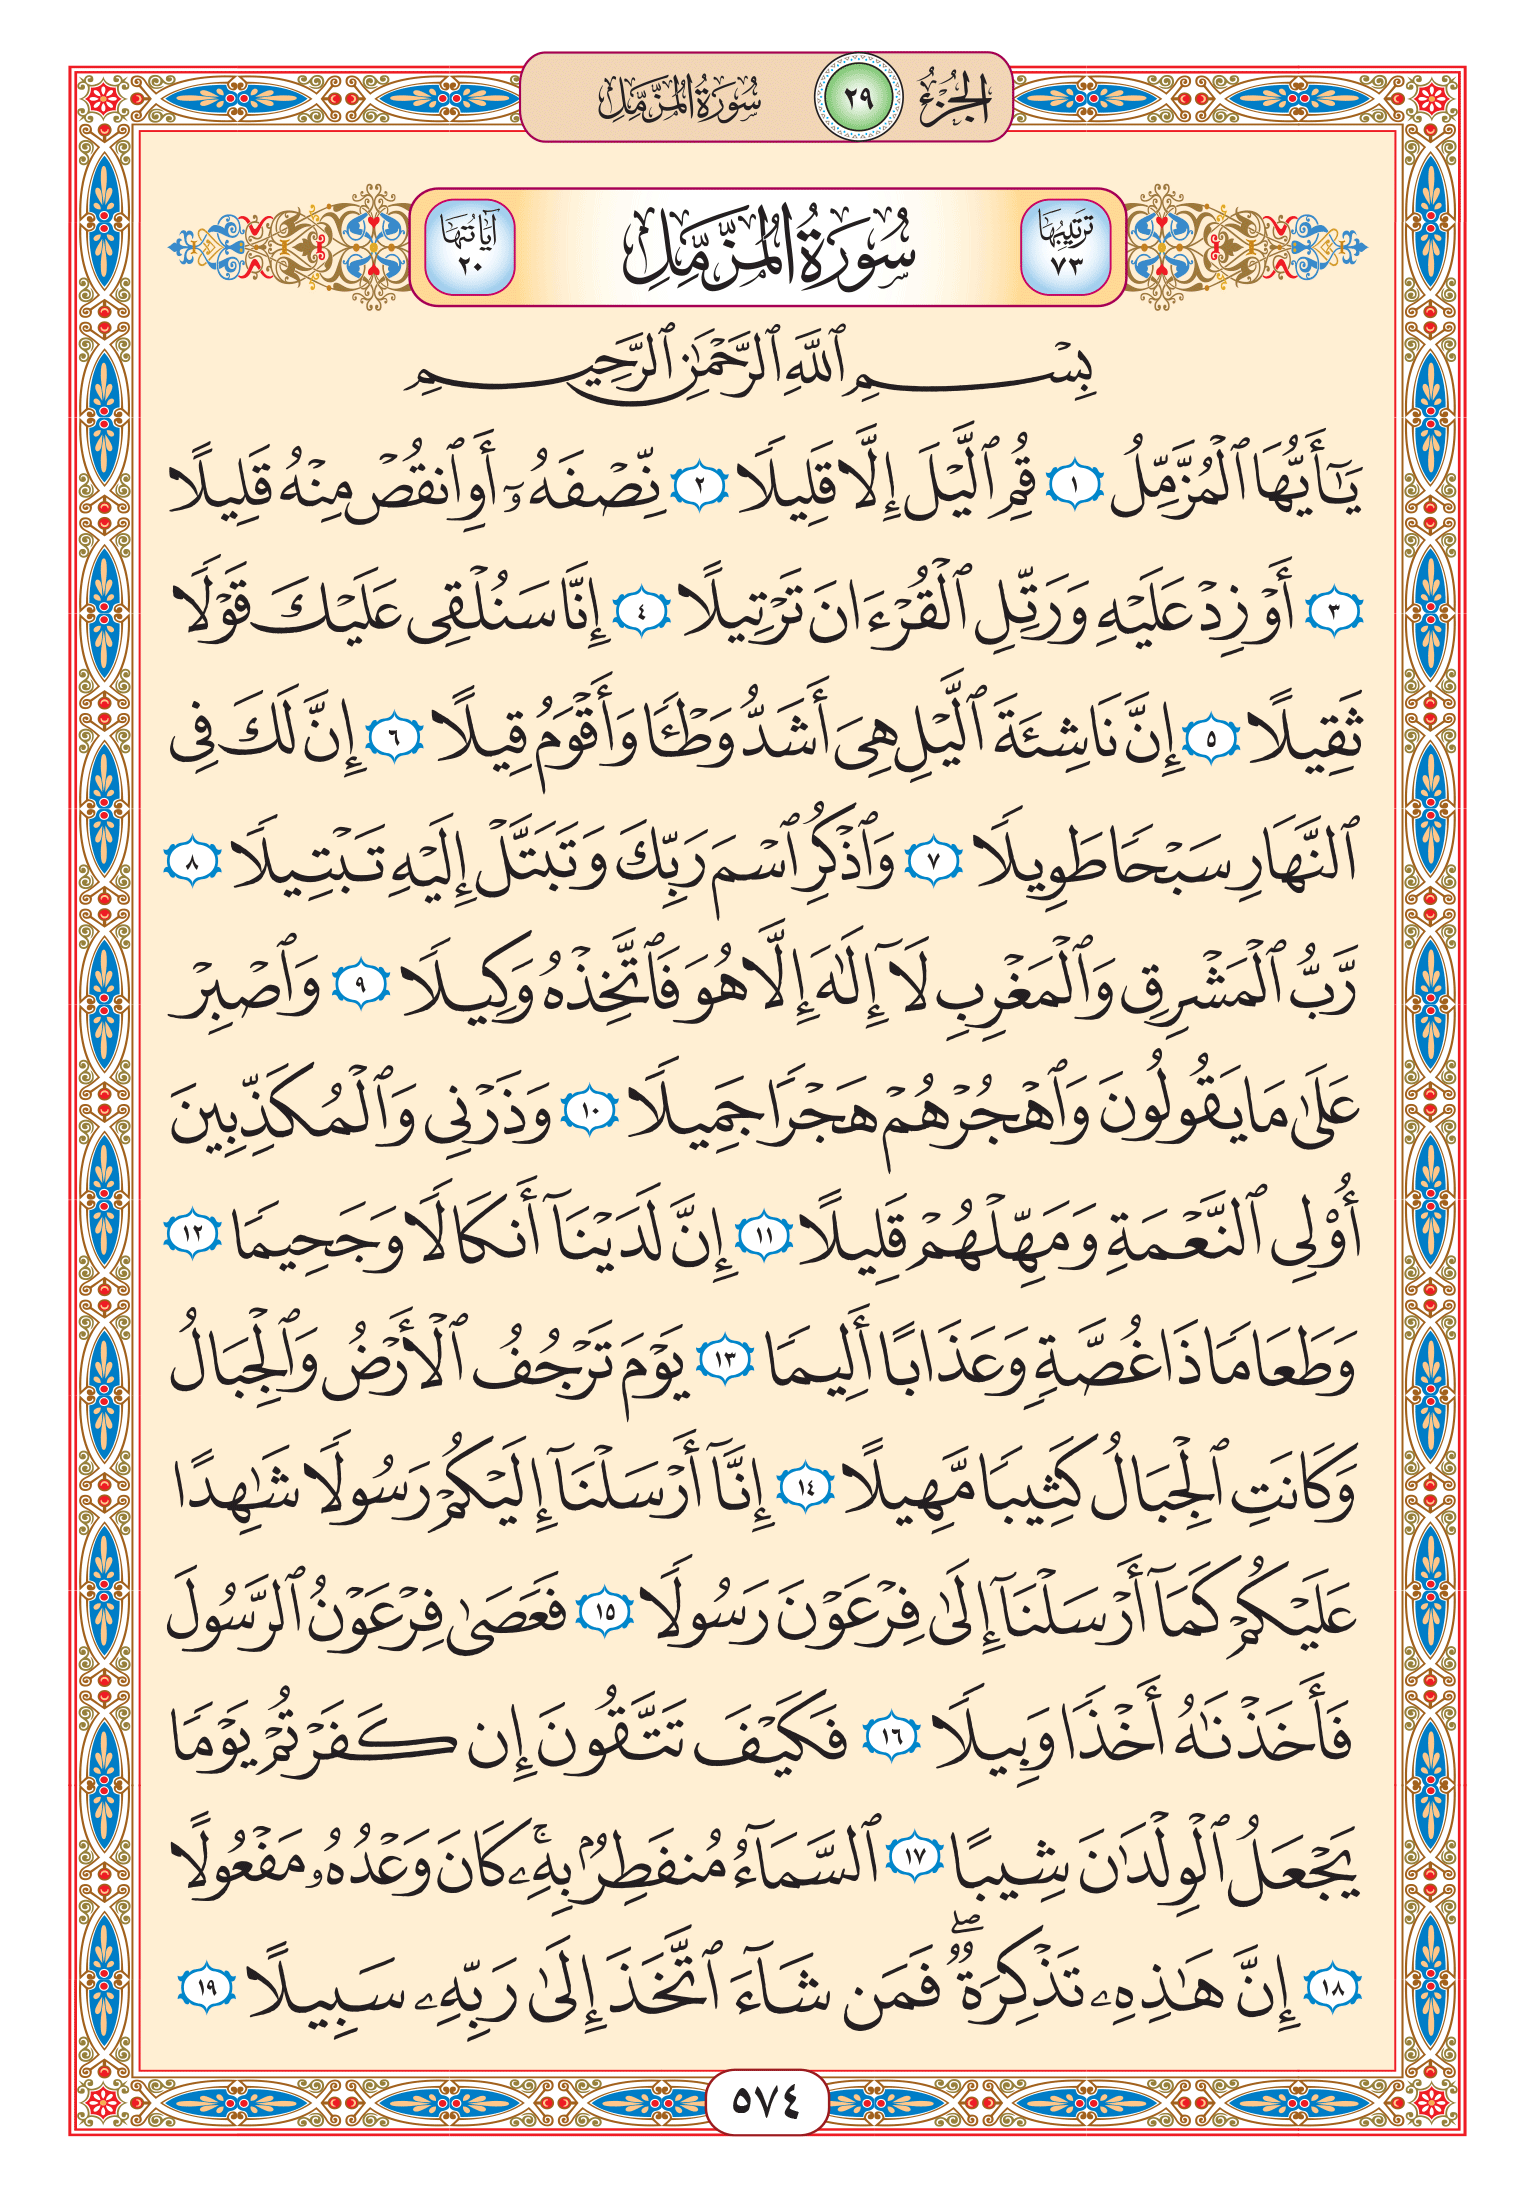 الجُزْءُ ٢٩ سُورَةُ المُزَّمِّلِ
تَرتيبُهَا ٧٣ سُورَةُ المُزَّمِّلِ آيَاتُهَا ٢٠
بِسْمِ ٱللَّهِ ٱلرَّحْمَٰنِ ٱلرَّحِيمِ
يَٰٓأَيُّهَا ٱلْمُزَّمِّلُ ١ قُمِ ٱلَّيْلَ إِلَّا قَلِيلًا ٢ نِّصْفَهُۥٓ أَوِ ٱنقُصْ مِنْهُ قَلِيلًا
٣ أَوْ زِدْ عَلَيْهِ وَرَتِّلِ ٱلْقُرْءَانَ تَرْتِيلًا ٤ إِنَّا سَنُلْقِى عَلَيْكَ قَوْلًا
ثَقِيلًا ٥ إِنَّ نَاشِئَةَ ٱلَّيْلِ هِىَ أَشَدُّ وَطْـًٔا وَأَقْوَمُ قِيلًا ٦ إِنَّ لَكَ فِى
ٱلنَّهَارِ سَبْحًا طَوِيلًا ٧ وَٱذْكُرِ ٱسْمَ رَبِّكَ وَتَبَتَّلْ إِلَيْهِ تَبْتِيلًا ٨
رَّبُّ ٱلْمَشْرِقِ وَٱلْمَغْرِبِ لَآ إِلَٰهَ إِلَّا هُوَ فَٱتَّخِذْهُ وَكِيلًا ٩ وَٱصْبِرْ
عَلَىٰ مَا يَقُولُونَ وَٱهْجُرْهُمْ هَجْرًا جَمِيلًا ١٠ وَذَرْنِى وَٱلْمُكَذِّبِينَ
أُو۟لِى ٱلنَّعْمَةِ وَمَهِّلْهُمْ قَلِيلًا ١١ إِنَّ لَدَيْنَآ أَنكَالًا وَجَحِيمًا ١٢
وَطَعَامًا ذَا غُصَّةٍ وَعَذَابًا أَلِيمًا ١٣ يَوْمَ تَرْجُفُ ٱلْأَرْضُ وَٱلْجِبَالُ
وَكَانَتِ ٱلْجِبَالُ كَثِيبًا مَّهِيلًا ١٤ إِنَّآ أَرْسَلْنَآ إِلَيْكُمْ رَسُولًا شَٰهِدًا
عَلَيْكُمْ كَمَآ أَرْسَلْنَآ إِلَىٰ فِرْعَوْنَ رَسُولًا ١٥ فَعَصَىٰ فِرْعَوْنُ ٱلرَّسُولَ
فَأَخَذْنَٰهُ أَخْذًا وَبِيلًا ١٦ فَكَيْفَ تَتَّقُونَ إِن كَفَرْتُمْ يَوْمًا
يَجْعَلُ ٱلْوِلْدَٰنَ شِيبًا ١٧ ٱلسَّمَآءُ مُنفَطِرٌۢ بِهِۦۚ كَانَ وَعْدُهُۥ مَفْعُولًا
١٨ إِنَّ هَٰذِهِۦ تَذْكِرَةٌۖ فَمَن شَآءَ ٱتَّخَذَ إِلَىٰ رَبِّهِۦ سَبِيلًا ١٩
٥٧٤